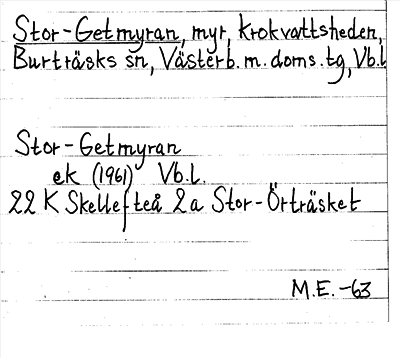 Stor-Getmyran, myr, Krokvattsheden,
Burträsks sn, Västerb. m. doms. tg, Vb.l
Stor-Getmyran
ek (1961) Vb.l.
22 K Skellefteå 2a Stor-Örträsket
M.E. -63